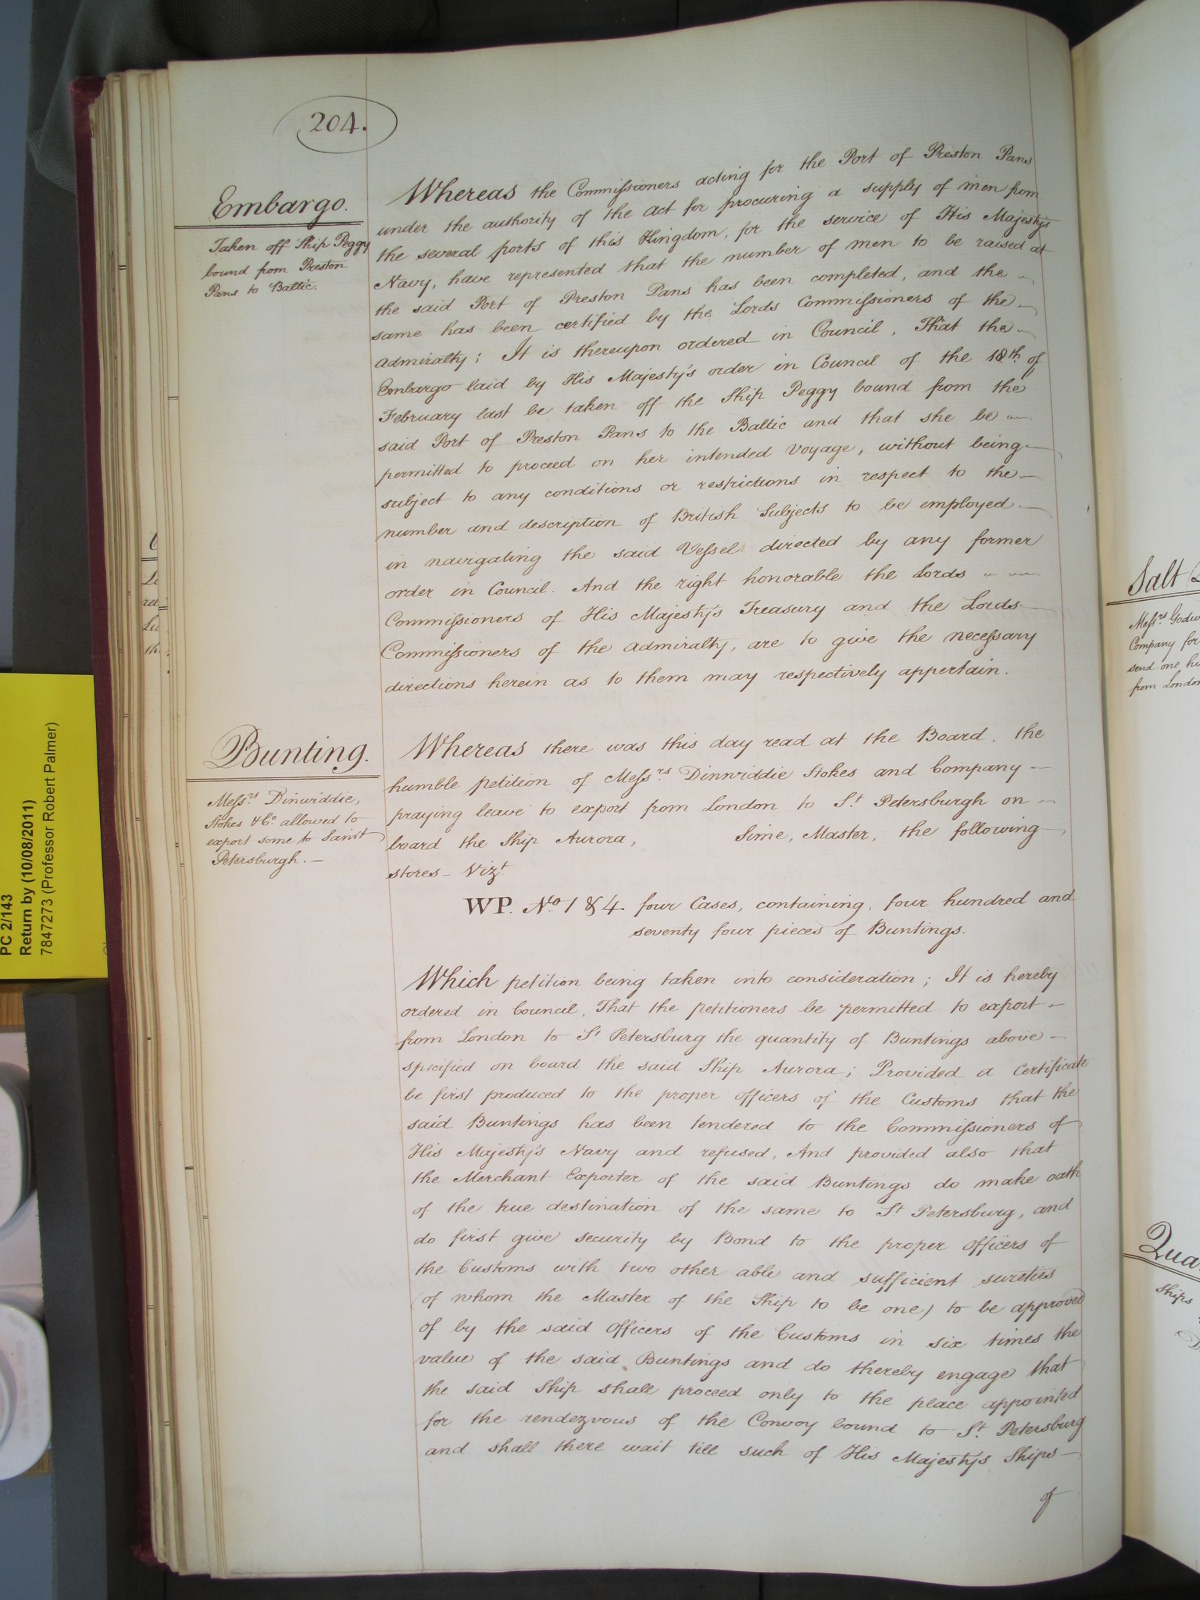 204.
Embargo.
Taken off Ship Peggy
bound from Preston
Pans to Baltic.
Whereas the Commissioners acting for the Port of Preston Pans
under the authority of the act for procuring a supply of men from
the several ports of this Kingdom, for the service of His Majesty's
Navy, have represented that the number of men to be raised at
the said Port of Preston Pans has been completed, and the
same has been certified by the Lords Commissioners of the
admiralty; It is thereupon ordered in Council, That the
Embargo laid by His Majesty's order in Council of the 18th of
February last be taken off the Ship Peggy bound from the
said Port of Preston Pans to the Baltic and that she be
permitted to proceed on her intended voyage, without being
subject to any conditions or restrictions in respect to the
number and description of British Subjects to be employed
in navigating the said Vessel directed by any former
order in Council. And the right honorable the Lords
Commissioners of His Majesty's Treasury and the Lords
Commissioners of the admiralty, are to give the necessary
directions herein as to them may respectively appertain.
Bunting.
Messrs Dinwiddie,
Stokes & Co allowed to
export some to Saint
Petersburgh.
Whereas there was this day read at the Board, the
humble petition of Messrs Dinwiddie Stokes and Company
praying leave to export from London to St Petersburgh on
board the Ship Aurora, Sime, Master, the following
stores – Vizt
WP. No 1 & 4. four Cases, containing, four hundred and
seventy four pieces of Buntings.
Which petition being taken into consideration; It is hereby
ordered in Council, That the petitioners be permitted to export
from London to St Petersburg the quantity of Buntings above
specified on board the said Ship Aurora; Provided a Certificate
be first produced to the proper officers of the Customs that the
said Buntings has been tendered to the Commissioners of
His Majesty's Navy and refused, And provided also that
the Merchant Exporter of the said Buntings do make oath
of the true destination of the same to St Petersburg, and
do first give security by Bond to the proper officers of
the Customs with two other able and sufficient sureties
(of whom the Master of the Ship to be one) to be approved
of by the said officers of the Customs in six times the
value of the said Buntings and do thereby engage that
the said Ship shall proceed only to the place appointed
for the rendezvous of the Convoy bound to St Petersburg
and shall there wait till such of His Majesty's Ships
of
Salt
Messrs
Company for
send one
from London
Qua
Ships
PC 2/143
Return by (10/08/2011)
7847273 (Professor Robert Palmer)